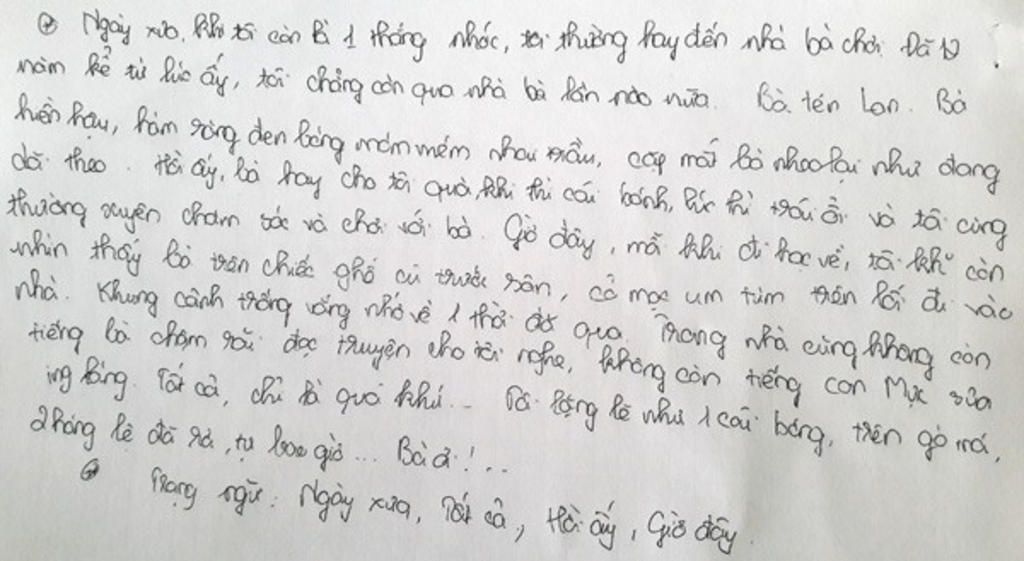 Ngày xưa, khi tôi còn là 1 thằng nhóc, tôi thường hay đến nhà bà chơi. Đã 10
năm kể từ lúc ấy, tôi chẳng còn qua nhà bà lần nào nữa. Bà tên Lan. Bà
hiền hậu, hàm răng đen bóng móm mém nhai trầu, cặp mắt bà nheo lại như đang
dõi theo. Hồi ấy, bà hay cho tôi quà, khi thì cái bánh, lúc thì trái ổi và tôi cũng
thường xuyên chăm sóc và chơi với bà. Giờ đây, mỗi khi đi học về, tôi kh° còn
nhìn thấy bà trên chiếc ghế cũ trước sân, cỏ mọc um tùm trên lối đi vào
nhà. Khung cảnh trống vắng nhớ về 1 thời đã qua. Trong nhà cũng không còn
tiếng bà chậm rãi đọc truyện cho tôi nghe, không còn tiếng con Mực sủa
ing ỏng. Tất cả, chỉ là quá khứ... Tôi lặng lẽ như 1 cái bóng, trên gò má,
2 hàng lệ đã rơi, tự bao giờ... Bà ơi!...
Trạng ngữ: Ngày xưa, Tất cả, Hồi ấy, Giờ đây.